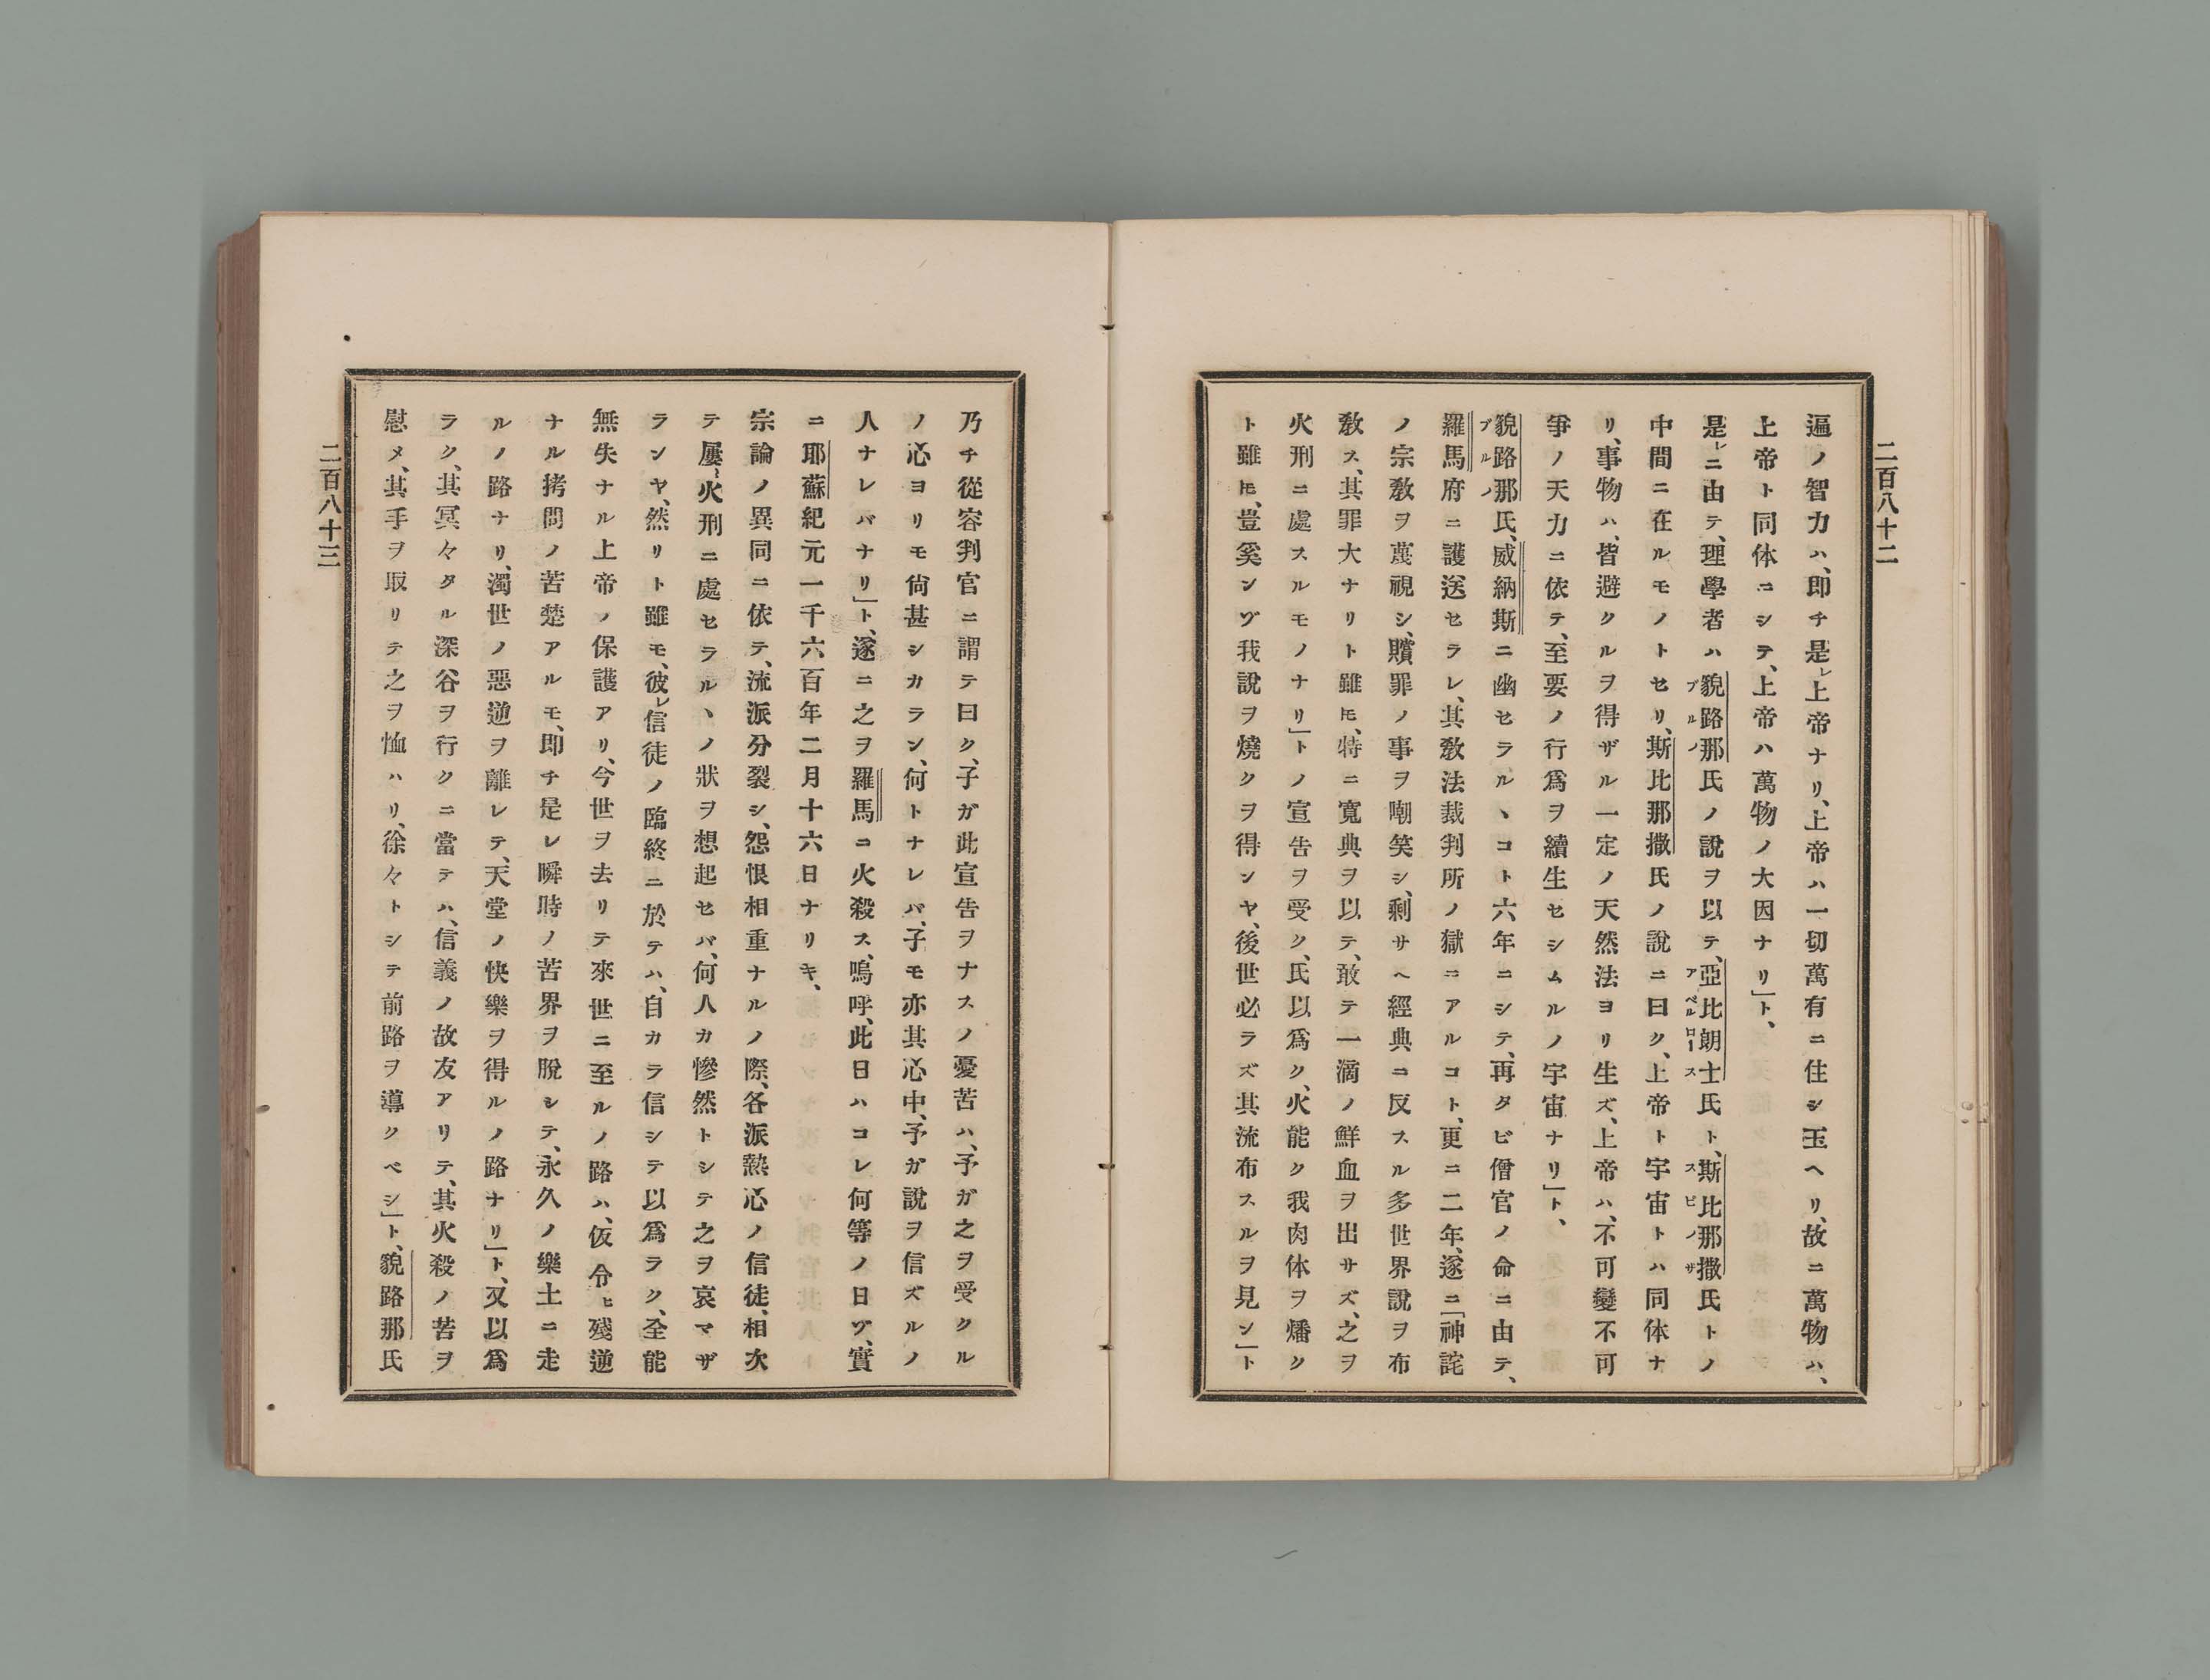 二百八十二
遍ノ智力ハ、即チ是レ上帝ナリ、上帝ハ一切萬有ニ住シ玉ヘリ、故ニ萬物ハ、
上帝ト同体ニシテ、上帝ハ萬物ノ大因ナリ」ト、
是レニ由テ、理學者ハ貌路那氏ノ說ヲ以テ、亞比朗士氏ト、斯比那撒氏トノ
ブルノ
アベルロース
スピノザ
中間ニ在ルモノトセリ、斯比那撒氏ノ說ニ曰ク、上帝ト宇宙トハ同体ナ
リ、事物ハ、皆避クルヲ得ザル一定ノ天然法ヨリ生ズ、上帝ハ、不可變不可
爭ノ天力ニ依テ、至要ノ行爲ヲ續生セシムルノ宇宙ナリ」ト、
貌路那氏、威納斯ニ幽セラルヽコト六年ニシテ、再タビ僧官ノ命ニ由テ、
ブルノ
羅馬府ニ護送セラレ、其敎法裁判所ノ獄ニアルコト、更ニ二年、遂ニ「神詫
ノ宗敎ヲ蔑視シ、贖罪ノ事ヲ嘲笑シ、剩サヘ經典ニ反スル多世界說ヲ布
敎ス、其罪大ナリト雖𪜈、特ニ寬典ヲ以テ、敢テ一滴ノ鮮血ヲ出サズ、之ヲ
火刑ニ處スルモノナリ」トノ宣告ヲ受ク、氏以爲ク、火能ク我肉体ヲ燔ク
ト雖𪜈、豈奚ンゾ我說ヲ燒クヲ得ンヤ、後世必ラズ其流布スルヲ見ン」ト
乃チ從容判官ニ謂テ曰ク、子ガ此宣告ヲナスノ憂苦ハ、予ガ之ヲ受クル
ノ心ヨリモ尙甚シカラン、何トナレバ、子モ亦其心中、予ガ說ヲ信ズルノ
人ナレバナリ」ト、遂ニ之ヲ羅馬ニ火殺ス、嗚呼、此日ハコレ何等ノ日ゾ、實
ニ耶蘇紀元一千六百年二月十六日ナリキ、
宗論ノ異同ニ依テ、流派分裂シ、怨恨相重ナルノ際、各派熱心ノ信徒、相次
テ屢〻火刑ニ處セラルヽノ狀ヲ想起セバ、何人カ慘然トシテ之ヲ哀マザ
ランヤ、然リト雖モ、彼レ信徒ノ臨終ニ於テハ、自カラ信シテ以爲ラク、全能
無失ナル上帝ノ保護アリ、今世ヲ去リテ來世ニ至ルノ路ハ、仮令ヒ殘逆
ナル拷問ノ苦楚アルモ、即チ是レ瞬時ノ苦界ヲ脫シテ、永久ノ樂土ニ走
ルノ路ナリ、濁世ノ惡逆ヲ離レテ、天堂ノ快樂ヲ得ルノ路ナリ」ト、又以爲
ラク、其冥々タル深谷ヲ行クニ當テハ、信義ノ故友アリテ、其火殺ノ苦ヲ
慰メ、其手ヲ取リテ之ヲ恤ハリ、徐々トシテ前路ヲ導クベシ」ト、貌路那氏
二百八十三